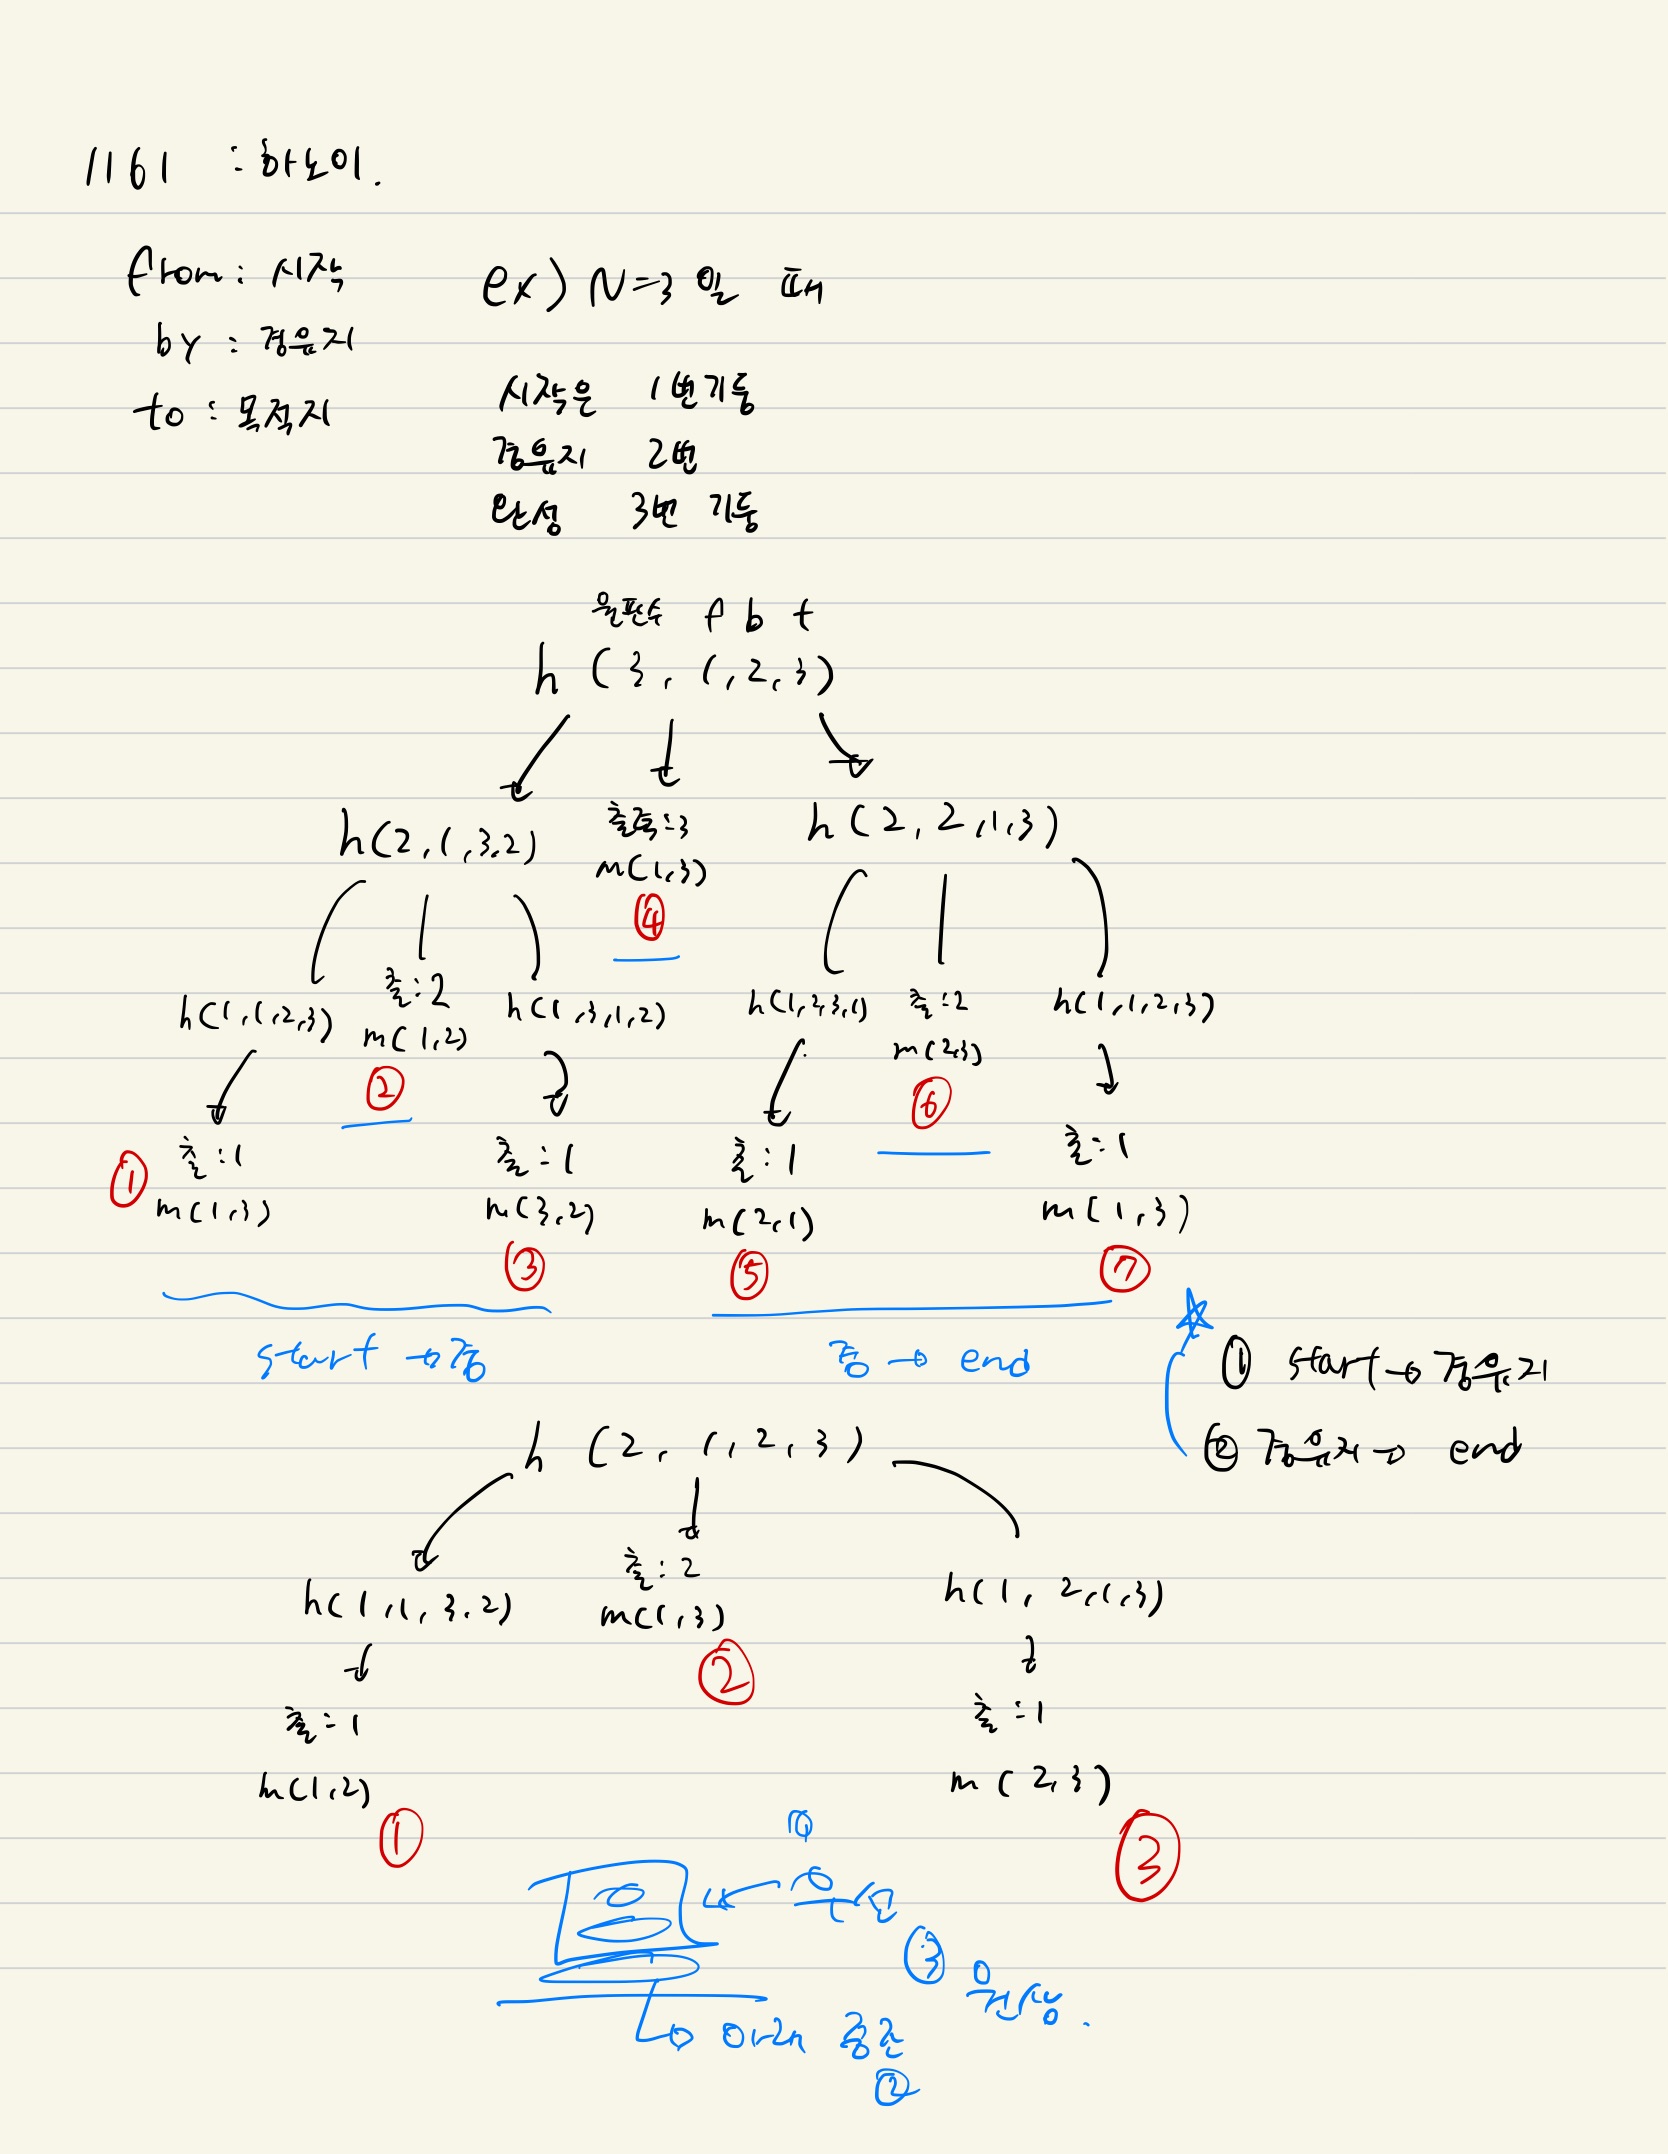 1161 : 하노이.
from : 시작
by : 경유지
to : 목적지
ex) N=3 일 때
시작은 1번기둥
경유지 2번
완성 3번 기둥
원판수 f b t
h (3, 1, 2, 3)
h(2, 1, 3, 2)
출력:3
m(1,3)
④
h(2, 2, 1, 3)
h(1, 1, 2, 3)
출:2
m(1,2)
②
h(1, 3, 1, 2)
h(1, 2, 3, 1)
출:2
m(2,3)
⑥
h(1, 1, 2, 3)
① 출:1
m(1,3)
출:1
m(3,2)
③
출:1
m(2,1)
⑤
출:1
m(1,3)
⑦
start → 중
중 → end
① start → 경유지
② 경유지 → end
h (2, 1, 2, 3)
h(1, 1, 3, 2)
출:2
m(1,3)
②
h(1, 2, 1, 3)
출:1
m(1,2)
①
출:1
m(2,3)
③
아래 중존
②
③